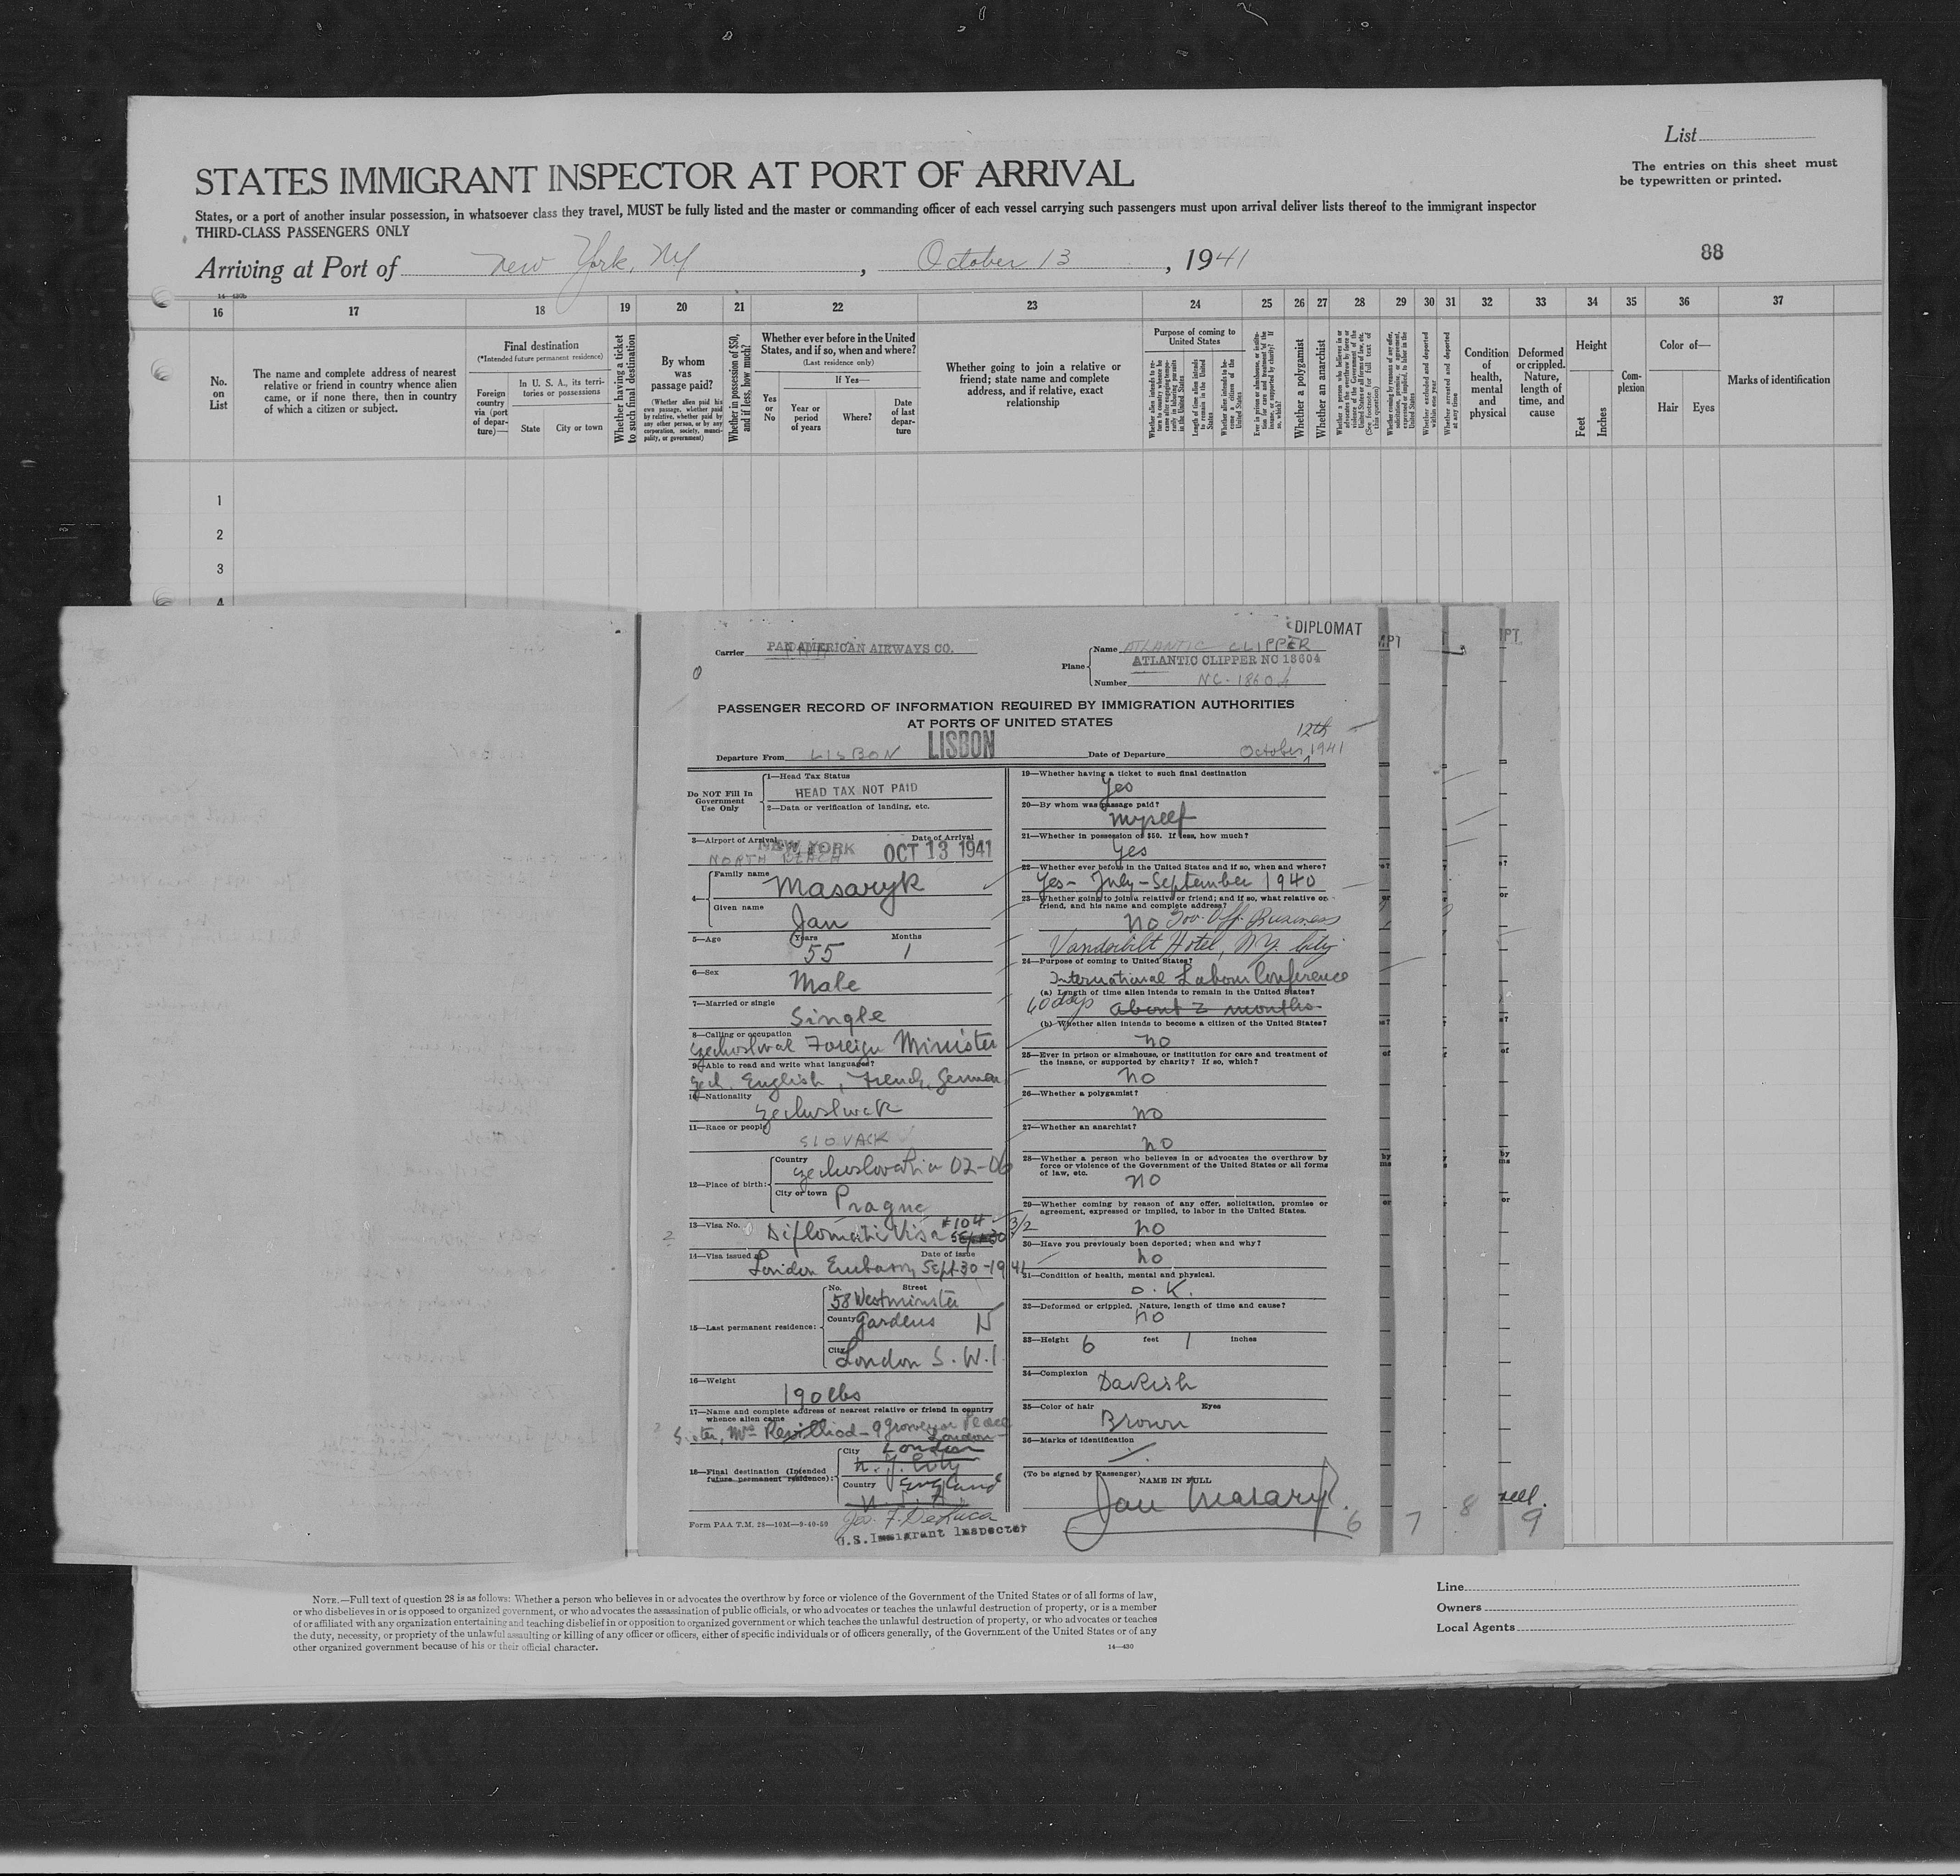 List
The entries on this sheet must
be typewritten or printed.
STATES IMMIGRANT INSPECTOR AT PORT OF ARRIVAL
States, or a port of another insular possession, in whatsoever class they travel, MUST be fully listed and the master or commanding officer of each vessel carrying such passengers must upon arrival deliver lists thereof to the immigrant inspector
THIRD-CLASS PASSENGERS ONLY
Arriving at Port of New York, NY, October 13, 1941
88
16 17 18 19 20 21 22 23 24 25 26 27 28 29 30 31 32 33 34 35 36 37
No. on List
The name and complete address of nearest
relative or friend in country whence alien
came, or if none there, then in country
of which a citizen or subject.
Final destination
(*Intended future permanent residence)
Foreign country via (port of departure)—
In U. S. A., its territories or possessions
State
City or town
Whether having a ticket to such final destination
By whom was passage paid?
(Whether alien paid his own passage, whether paid by relative, whether paid by any other person, or by any corporation, society, municipality, or government)
Whether in possession of $50, and if less, how much?
Whether ever before in the United
States, and if so, when and where?
(Last residence only)
If Yes—
Yes or No
Year or period of years
Where?
Date of last departure
Whether going to join a relative or
friend; state name and complete
address, and if relative, exact
relationship
Purpose of coming to
United States
Whether a polygamist
Whether an anarchist
Condition of health, mental and physical
Deformed or crippled. Nature, length of time, and cause
Height
Feet
Inches
Complexion
Color of—
Hair
Eyes
Marks of identification
1
2
3
4
DIPLOMAT
Carrier PAN AMERICAN AIRWAYS CO.
Plane
Name ATLANTIC CLIPPER
ATLANTIC CLIPPER NC 18604
Number NC-18604
PASSENGER RECORD OF INFORMATION REQUIRED BY IMMIGRATION AUTHORITIES
AT PORTS OF UNITED STATES
Departure From LISBON LISBON
Date of Departure October 12th 1941
Do NOT Fill In
Government
Use Only
1—Head Tax Status
HEAD TAX NOT PAID
2—Data or verification of landing, etc.
3—Airport of Arrival NEW YORK
NORTH BEACH
Date of Arrival OCT 13 1941
4—
Family name Masaryk
Given name Jan
5—Age Years 55 Months 1
6—Sex Male
7—Married or single Single
8—Calling or occupation
Czechoslovak Foreign Minister
9—Able to read and write what languages?
English, French, German
10—Nationality
11—Race or people
SLOVACK
12—Place of birth:
Country Czechoslovakia 02-06
City or town Prague
13—Visa No. Diplomatic Visa #104 3/2
14—Visa issued at London Embassy
Date of issue Sept-30-1941
15—Last permanent residence:
No. Street
58 Westminster
County Gardens
City London S.W.1
16—Weight 190 lbs
17—Name and complete address of nearest relative or friend in country
whence alien came
Sister, Mrs Revilliod - 9 Grosvenor Place
London
18—Final destination (Intended
future permanent residence):
City London
N. Y. City
Country England
U. S. A.
Form PAA T.M. 28—10M—9-40-50
Jos. F. DeLuca
U.S. Immigrant Inspector
19—Whether having a ticket to such final destination
Yes
20—By whom was passage paid?
Myself
21—Whether in possession of $50. If less, how much?
Yes
22—Whether ever before in the United States and if so, when and where?
Yes - July - September 1940
23—Whether going to join a relative or friend; and if so, what relative or
friend, and his name and complete address?
No Gov. Off. Business
Vanderbilt Hotel, N.Y. City
24—Purpose of coming to United States?
International Labour Conference
(a) Length of time alien intends to remain in the United States?
60 days about 2 months
(b) Whether alien intends to become a citizen of the United States?
no
25—Ever in prison or almshouse, or institution for care and treatment of
the insane, or supported by charity? If so, which?
no
26—Whether a polygamist?
no
27—Whether an anarchist?
no
28—Whether a person who believes in or advocates the overthrow by
force or violence of the Government of the United States or all forms
of law, etc.
no
29—Whether coming by reason of any offer, solicitation, promise or
agreement, expressed or implied, to labor in the United States.
no
30—Have you previously been deported; when and why?
no
31—Condition of health, mental and physical.
O.K.
32—Deformed or crippled. Nature, length of time and cause?
no
33—Height 6 feet 1 inches
34—Complexion Darkish
35—Color of hair Eyes
Brown
36—Marks of identification
(To be signed by Passenger)
NAME IN FULL
Jan Masaryk.
6 7 8 9
NOTE.—Full text of question 28 is as follows: Whether a person who believes in or advocates the overthrow by force or violence of the Government of the United States or of all forms of law,
or who disbelieves in or is opposed to organized government, or who advocates the assassination of public officials, or who advocates or teaches the unlawful destruction of property, or is a member
of or affiliated with any organization entertaining and teaching disbelief in or opposition to organized government or which teaches the unlawful destruction of property, or who advocates or teaches
the duty, necessity, or propriety of the unlawful assaulting or killing of any officer or officers, either of specific individuals or of officers generally, of the Government of the United States or of any
other organized government because of his or their official character.
14—430
Line
Owners
Local Agents